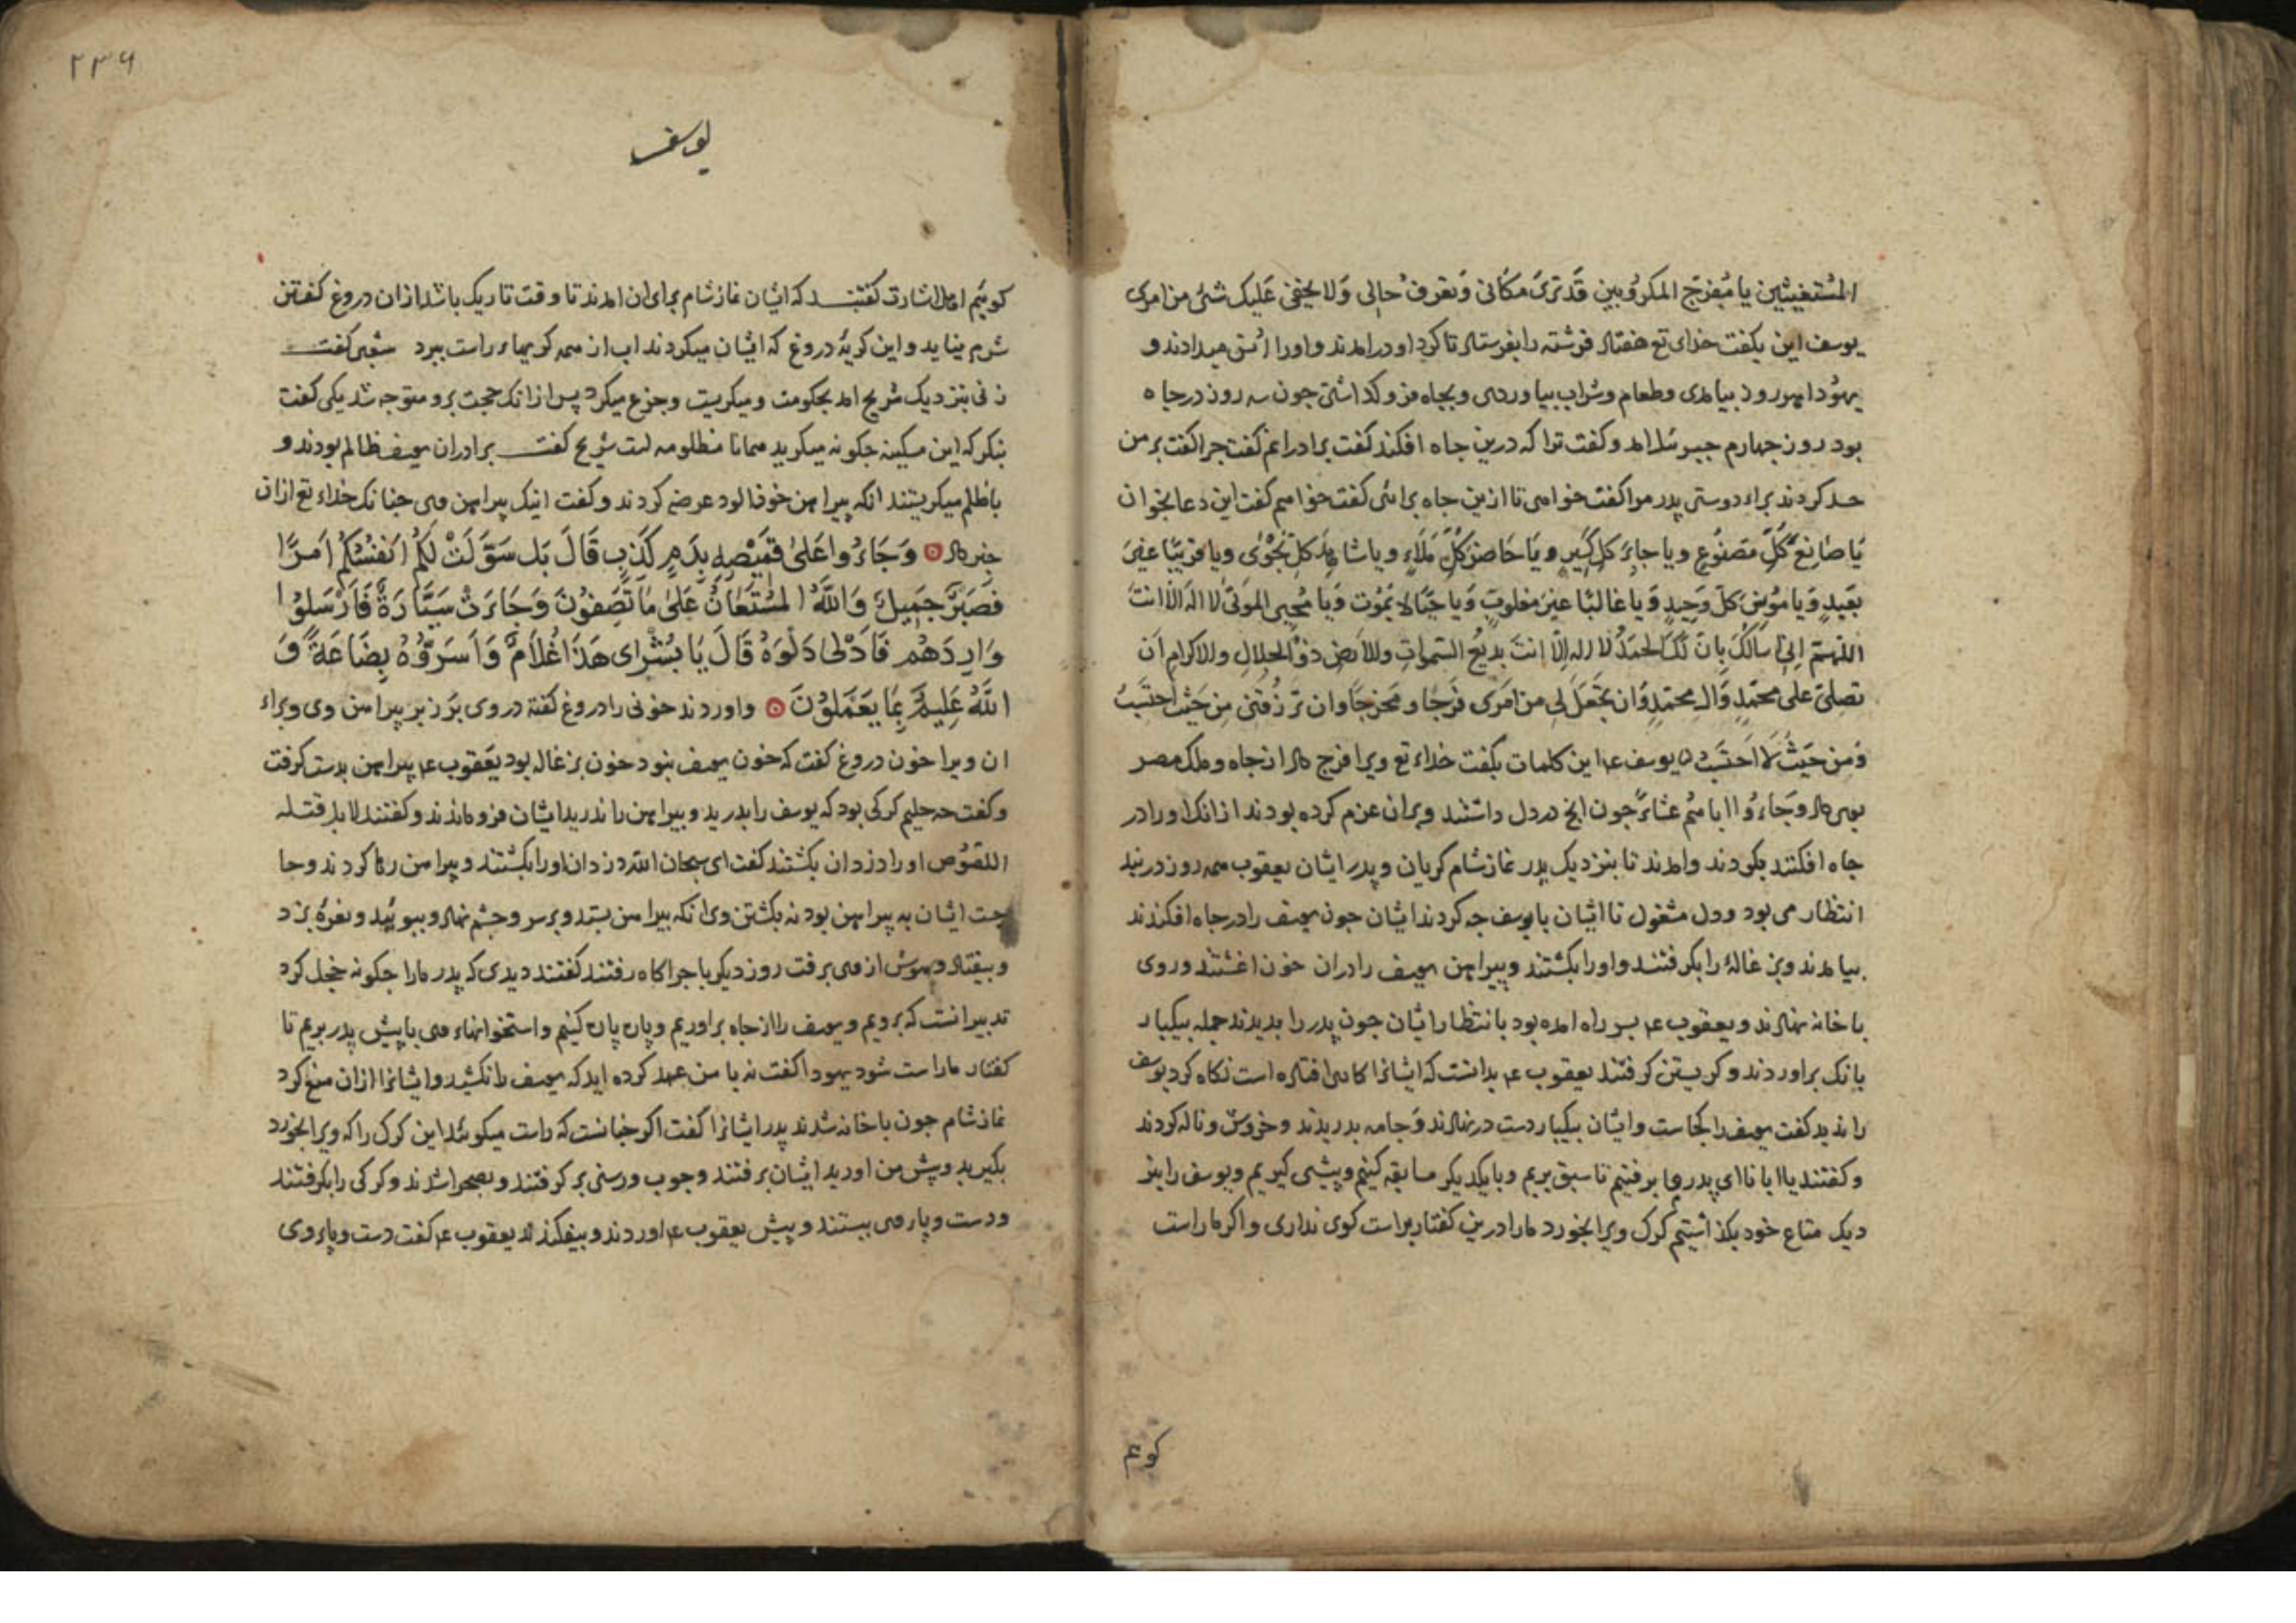 المستغیثین یا مفرج المکروبین قد تری مکانی و تعرف حالی ولا یخفی علیک شئ من امری
یوسف این بکفت خدای تع هفتاد فرشته را بفرستاد تا کرد او درامدند و او را انس میدادند و
یهودا هر روز بیامدی و طعام و شراب بیاوردی و بجاه فرو کذاشتی جون سه روز در جاه
بود روز جهارم جبرئیل امد و کفت ترا که درین جاه افکند کفت برادرانم کفت جرا کفت بر من
حسد کردند براء دوستی پدر مرا کفت خواهی تا ازین جاه برائی کفت خواهم کفت این دعا بخوان
یا صانع کل مصنوع و یا جابر کل کسیر و یا حاضر کل ملاء و یا شاهد کل نجوی و یا قریبا غیر
بعید و یا مونس کل وحید و یا غالبا غیر مغلوب و یا حیا لا یموت و یا محیی الموتی لا اله الا انت
اللهم انی اسالک بان لک الحمد لا اله الا انت بدیع السموات والارض ذو الجلال والاکرام ان
تصلی علی محمد وال محمد وان تجعل لی من امری فرجا و مخرجا وان ترزقنی من حیث احتسب
ومن حیث لا احتسب یوسف ع این کلمات بکفت خداء تع ویرا فرج داد از جاه و ملک مصر
بوی داد وجاءوا اباهم عشاء جون انج در دل داشتند و بران عزم کرده بودند از انک او را در
جاه افکنند بکردند و امدند تا بنزدیک پدر نماز شام کریان و پدر ایشان یعقوب همه روز در بند
انتظار می بود و دل مشغول تا ایشان با یوسف جه کردند ایشان جون یوسف را در جاه افکندند
بیامدند و بزغالۀ را بکرفتند و او را بکشتند و پیراهن یوسف را دران خون اغشتند و روی
با خانه نهادند و یعقوب ع بر سر راه امده بود بانتظار ایشان جون پدر را بدیدند جمله بیکبار
بانک براوردند و کریستن کرفتند یعقوب ع بدانست که ایشانرا کاری افتاده است نکاه کرد یوسف
را ندید کفت یوسف را کجاست و ایشان بیکبار دست در نهادند و جامه بدریدند و خروش و ناله کردند
و کفتند یا ابانا ای پدر ما برفتیم تا سبق بریم و با یکدیکر مسابقه کنیم و پیشی کیریم و یوسف را بنز
دیک متاع خود بکذاشتیم کرک ویرا بخورد مارا درین کفتار براست کوی نداری و اکر ما راست
کوئم
۲۳۶
یوسف
کوئیم اهل اشارت کفتند که ایشان نماز شام برای ان امدند تا وقت تاریک باشد از ان دروغ کفتن
شرم نیاید و این کریۀ دروغ که ایشان میکردند اب از همه کریهاء راست ببرد شعبی کفت
زنی بنزدیک شریح امد بحکومت و میکریست و جزع میکرد پس از انک حجت برو متوجه شد یکی کفت
بنکر که این مسکینه جکونه میکرید همانا مظلومه است شریح کفت برادران یوسف ظالم بودند و
باظلم میکریستند انکه پیراهن خون الود عرضه کردند و کفت اینک پیراهن وی جنانک خداء تع ازان
خبر داد وجاءوا علی قمیصه بدم کذب قال بل سولت لکم انفسکم امرا
فصبر جمیل والله المستعان علی ما تصفون وجاءت سیارة فارسلوا
واردهم فادلی دلوه قال یا بشرای هذا غلام واسروه بضاعة و
الله علیم بما یعملون و اوردند خونی را دروغ کفته در وی بر زبر پیراهن وی و براء
ان ویرا خون دروغ کفت که خون یوسف نبود خون بزغاله بود یعقوب ع پیراهن بدست کرفت
و کفت جه حلیم کرکی بود که یوسف را بدرید و پیراهن را ندرید ایشان فرو ماندند و کفتند لا بل قتله
اللصوص او را دزدان بکشتند کفت ای سبحان الله دزدان او را بکشتند و پیراهن رها کردند و حا
جت ایشان به پیراهن بود نه بکشتن وی انکه پیراهن بستد و بر سر و جشم نهاد و ببوئید و نعرۀ بزد
و بیفتاد و هوش از وی برفت روز دیکر با جراکاه رفتند کفتند دیدی که پدر مارا جکونه خجل کرد
تدبیر انست که برویم و یوسف را از جاه براوریم و پاره پاره کنیم و استخوانهاء وی با پیش پدر بریم تا
کفتار ما راست شود یهودا کفت نه با من عهد کرده اید که یوسف را نکشید و ایشانرا از ان منع کرد
نماز شام جون با خانه شدند پدر ایشانرا کفت اکر جنانست که راست میکوئید این کرک را که ویرا بخورد
بکیرید و پیش من اورید ایشان برفتند و جوب و رسنی برکرفتند و بصحرا شدند و کرکی را بکرفتند
و دست و پاء وی ببستند و پیش یعقوب ع اوردند و بیفکندند یعقوب ع کفت دست و پاء وی